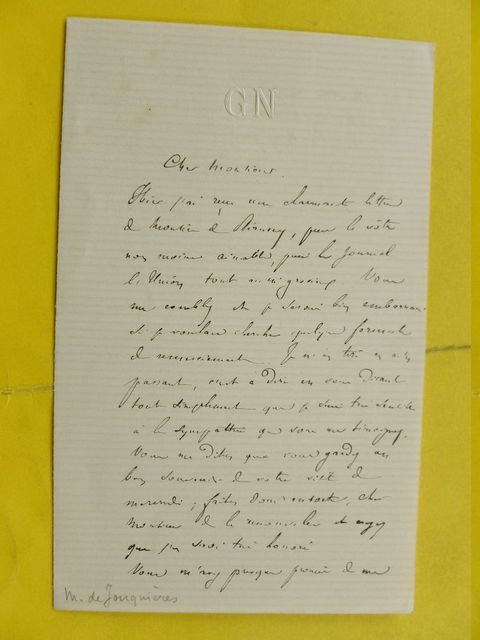 GN
Cher Monsieur.
Hier j'ai reçu une charmante lettre
de Monsieur de puis la vôtre
non moins aimable, puis le Journal
l'Union tout Vous
me comblez et je serais bien embarras-
sé je voulais chercher quelque formule
de remerciement. Je m'en tire en
passant, c'est à dire en vous disant
tout simplement que je suis très sensible
à la sympathie que vous me témoignez.
Vous me dites que vous gardez un
bon souvenir de votre visite de
mercredi ; faites donc en sorte, cher
Monsieur de la renouveler et croyez
que j'en serai très honoré
Vous m'avez presque promis de me
M. de Jonquières